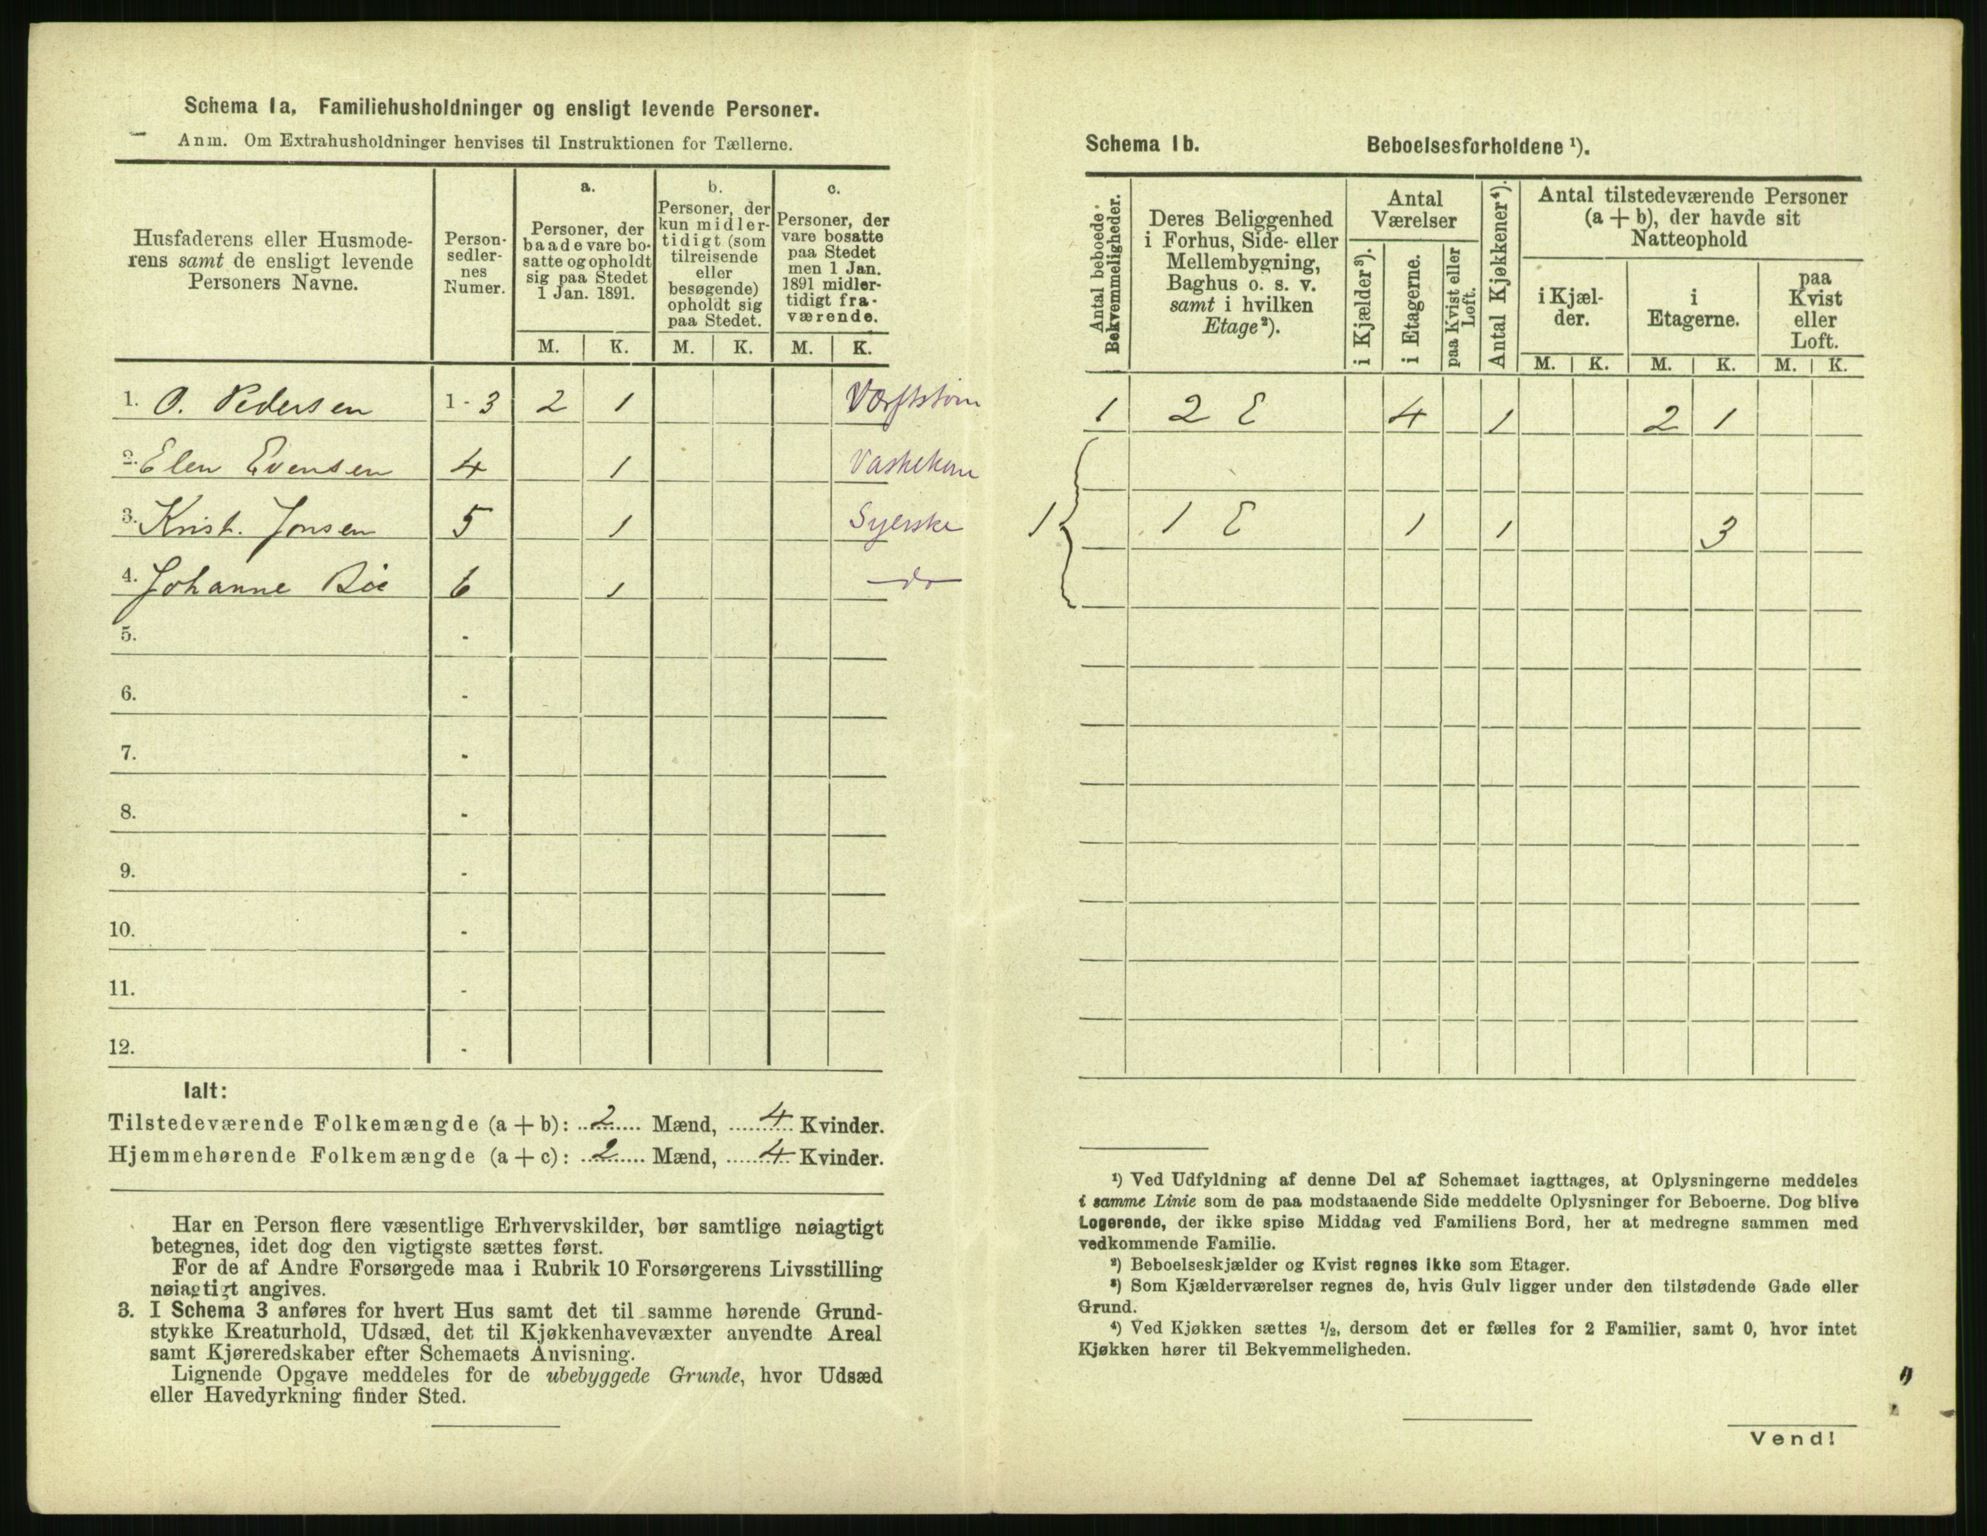 Schema 1a. Familiehusholdninger og ensligt levende Personer.
Anm. Om Extrahusholdninger henvises til Instruktionen for Tællerne.
Husfaderens eller Husmode-
rens samt de ensligt levende
Personers Navne.
Person-
sedler-
nes
Numer.
a.
Personer, der
baade vare bo-
satte og opholdt
sig paa Stedet
1 Jan. 1891.
b.
Personer, der
kun midler-
tidigt (som
tilreisende
eller
besøgende)
opholdt sig
paa Stedet.
c.
Personer, der
vare bosatte
paa Stedet
men 1 Jan.
1891 midler-
tidigt fra-
værende.
M. K. M. K. M. K.
1. O. Pedersen 1 - 3 2 1
2. Elen Evensen 4 1
3. Krist. Jonsen 5 1 Syerske
4. Johanne Bøe 6 1 do
5. -
6. -
7. -
8. -
9. -
10. -
11. -
12. -
Ialt:
Tilstedeværende Folkemængde (a + b): 2 Mænd, 4 Kvinder.
Hjemmehørende Folkemængde (a + c): 2 Mænd, 4 Kvinder.
Har en Person flere væsentlige Erhvervskilder, bør samtlige nøiagtigt
betegnes, idet dog den vigtigste sættes først.
For de af Andre Forsørgede maa i Rubrik 10 Forsørgerens Livsstilling
nøiagtigt angives.
3. I Schema 3 anføres for hvert Hus samt det til samme hørende Grund-
stykke Kreaturhold, Udsæd, det til Kjøkkenhavevæxter anvendte Areal
samt Kjøreredskaber efter Schemaets Anvisning.
Lignende Opgave meddeles for de ubebyggede Grunde, hvor Udsæd
eller Havedyrkning finder Sted.
Schema 1b. Beboelsesforholdene ¹).
Antal beboede
Bekvemmeligheder.
Deres Beliggenhed
i Forhus, Side- eller
Mellembygning,
Baghus o. s. v.
samt i hvilken
Etage²).
Antal
Værelser
i Kjælder³).
i Etagerne.
paa Kvist eller
Loft.
Antal Kjøkkener⁴).
Antal tilstedeværende Personer
(a + b), der havde sit
Natteophold
i Kjæl-
der.
i
Etagerne.
paa
Kvist
eller
Loft.
M. K. M. K. M. K.
1 2 E 4 1 2 1
1 1 E 1 1 3
¹) Ved Udfyldning af denne Del af Schemaet iagttages, at Oplysningerne meddeles
i samme Linie som de paa modstaaende Side meddelte Oplysninger for Beboerne. Dog blive
Logerende, der ikke spise Middag ved Familiens Bord, her at medregne sammen med
vedkommende Familie.
²) Beboelseskjælder og Kvist regnes ikke som Etager.
³) Som Kjælderværelser regnes de, hvis Gulv ligger under den tilstødende Gade eller
Grund.
⁴) Ved Kjøkken sættes ½, dersom det er fælles for 2 Familier, samt 0, hvor intet
Kjøkken hører til Bekvemmeligheden.
Vend!